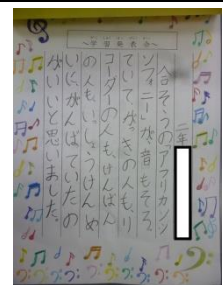 ～学習発表会～
二年
合そうのアフリカンシ
ンフォニーが音もそろっ
ていて、がっきの人もリ
コーダーの人も、けんばん
の人も、いっしょうけんめ
いにがんばっていたの
がいいと思いました。